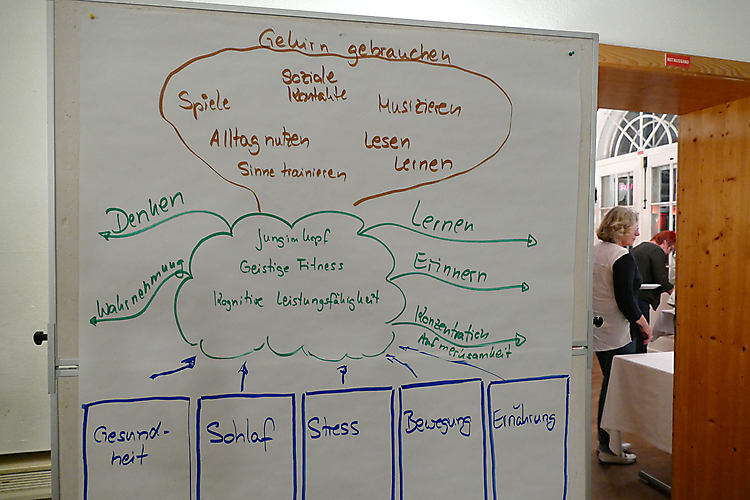 Gehirn gebrauchen
Soziale
Kontakte
Spiele
Musizieren
Alltag nutzen
Lesen
Sinne trainieren
Lernen
Denken
Lernen
Jung im Kopf
Geistige Fitness
Erinnern
Wahrnehmung
Kognitive Leistungsfähigkeit
Konzentration
Aufmerksamkeit
Gesund-
heit
Schlaf
Stress
Bewegung
Ernährung
NOTAUSGANG